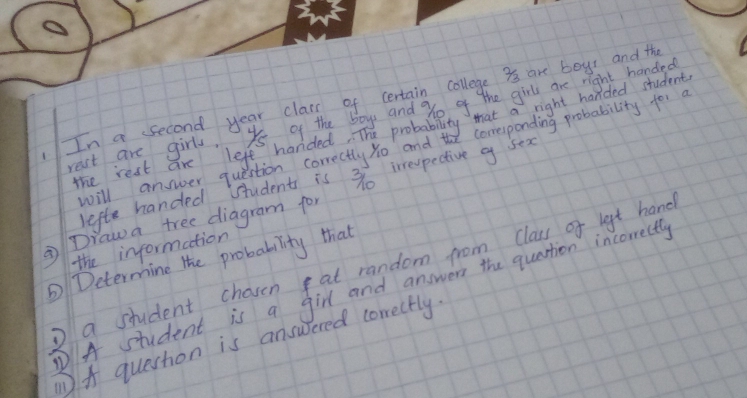 1. In a second year class of certain college ⅔ are boys and the
rest are girls. ⅘ of the boys and 9/10 of the girls are right handed
the rest are left handed. The probability that a right handed students
will answer question correctly 1/10 and the corresponding probability for a
left handed students is 3/10 irrespective of sex
a) Draw a tree diagram for
the information
b) Determine the probability that
i) a student chosen at random from class of left hand
ii) A student is a girl and answers the question incorrectly
iii) A question is answered correctly.